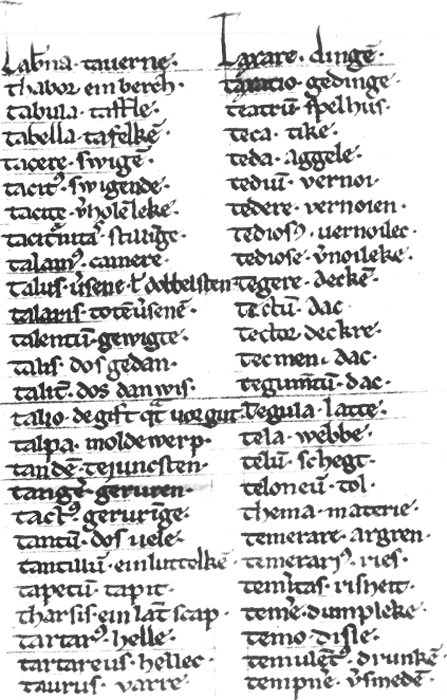 Tabna · tauerne ·
thabor ein berch ·
tabula · taffle ·
tabella · tafelkē ·
tacere · swigē ·
tacit⁹ · swigende ·
tacite · v̓holēleke ·
taciturnitas · stillinge ·
talam⁹ · camere ·
talus · v̓sene · ł dobbelsten
talaris · totev̓senē ·
talentū · gewigte ·
talis · dos gedan ·
talit̓ · dos dan wis ·
talio · de gift qͣt uor gut ·
talpa · moldewerp ·
tandē · tejuncsten ·
tangē · geruren ·
tact⁹ · gerurige ·
tantū · dos uele ·
tantillū · ein luttelkē ·
tapetū · tapit ·
tharsis · ein lāt scap ·
tartar⁹ · helle ·
tartareus · hellec ·
taurus · varre ·
Taxare · dingē ·
taxatio · gedinge ·
teatrū · spelhus ·
teca · tike ·
teda · aggele ·
tediū · vernoi ·
tedere · vernoien ·
tedios⁹ · uernoilec ·
tediose · v̓noileke ·
tegere · deckē ·
tectū · dac ·
tector · deckre ·
tecmen · dac ·
tegum̄tū · dac ·
Tegula · latte ·
tela · webbe ·
telū · schegt ·
teloneū · tol ·
thema · materie ·
temerare · argren ·
temerari⁹ · ries ·
tem̓itas · risheit ·
temē · dumpleke ·
temo · disle ·
temulēt⁹ · drunkē
tempne · v̓smedē ·